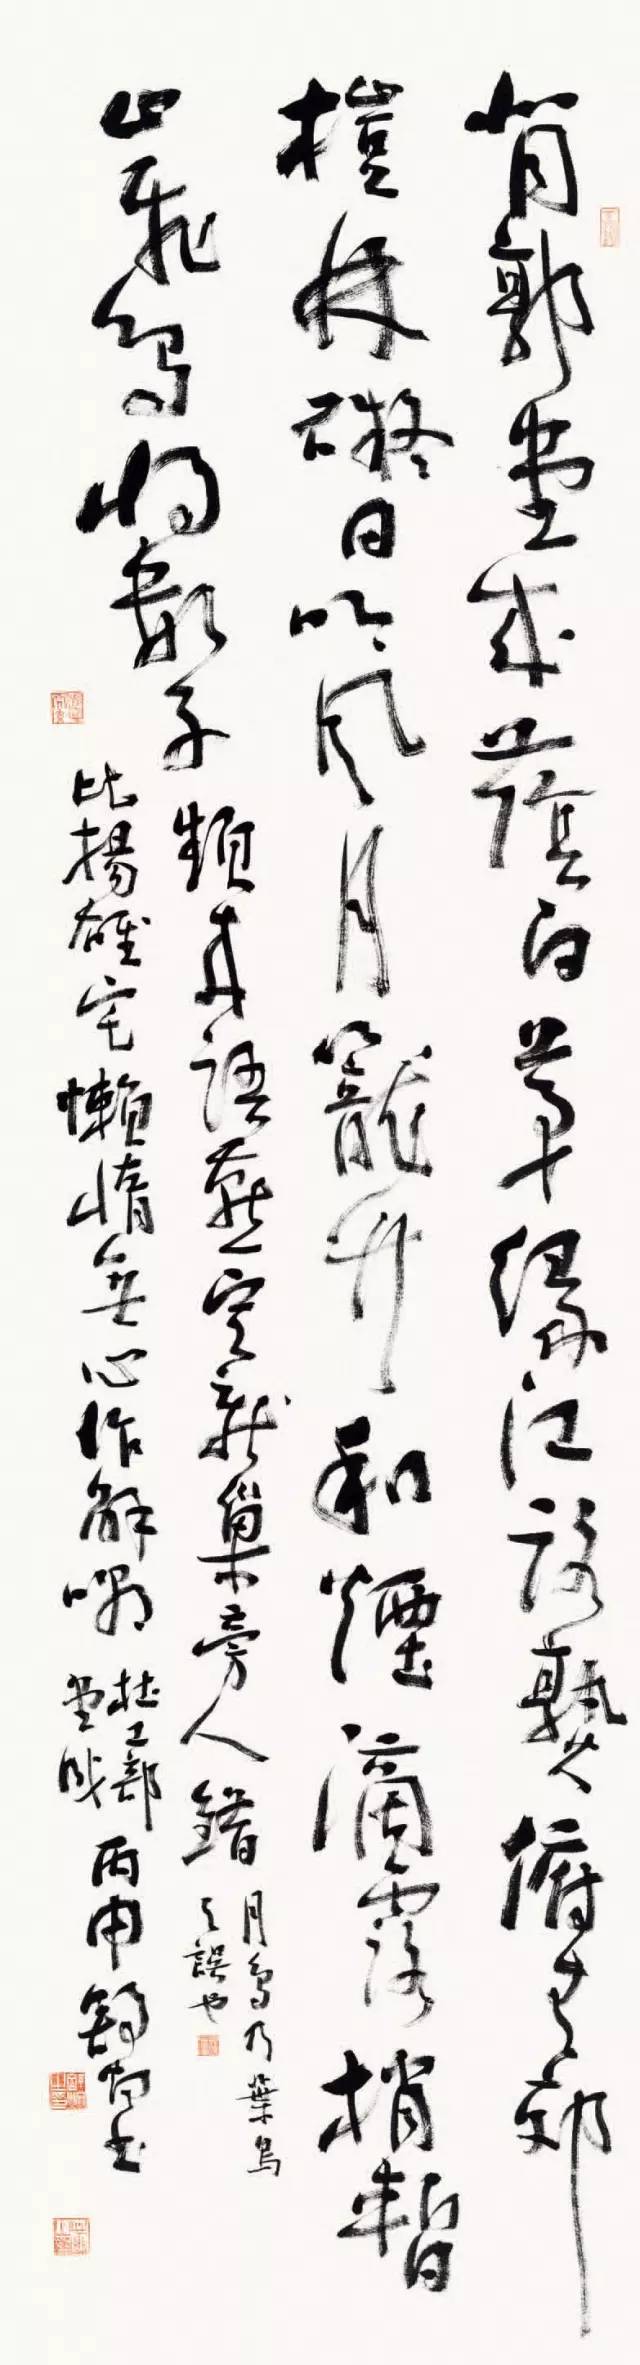 背郭堂成蔭白茅緣江路熟俯青郊
榿林礙日吟風月籠竹和煙滴露梢暫
止飛鳥將數子
頻來語燕定新巢旁人錯
月鳥乃葉烏
之誤也
比揚雄宅懶惰無心作解嘲
杜工部
堂成
丙申書